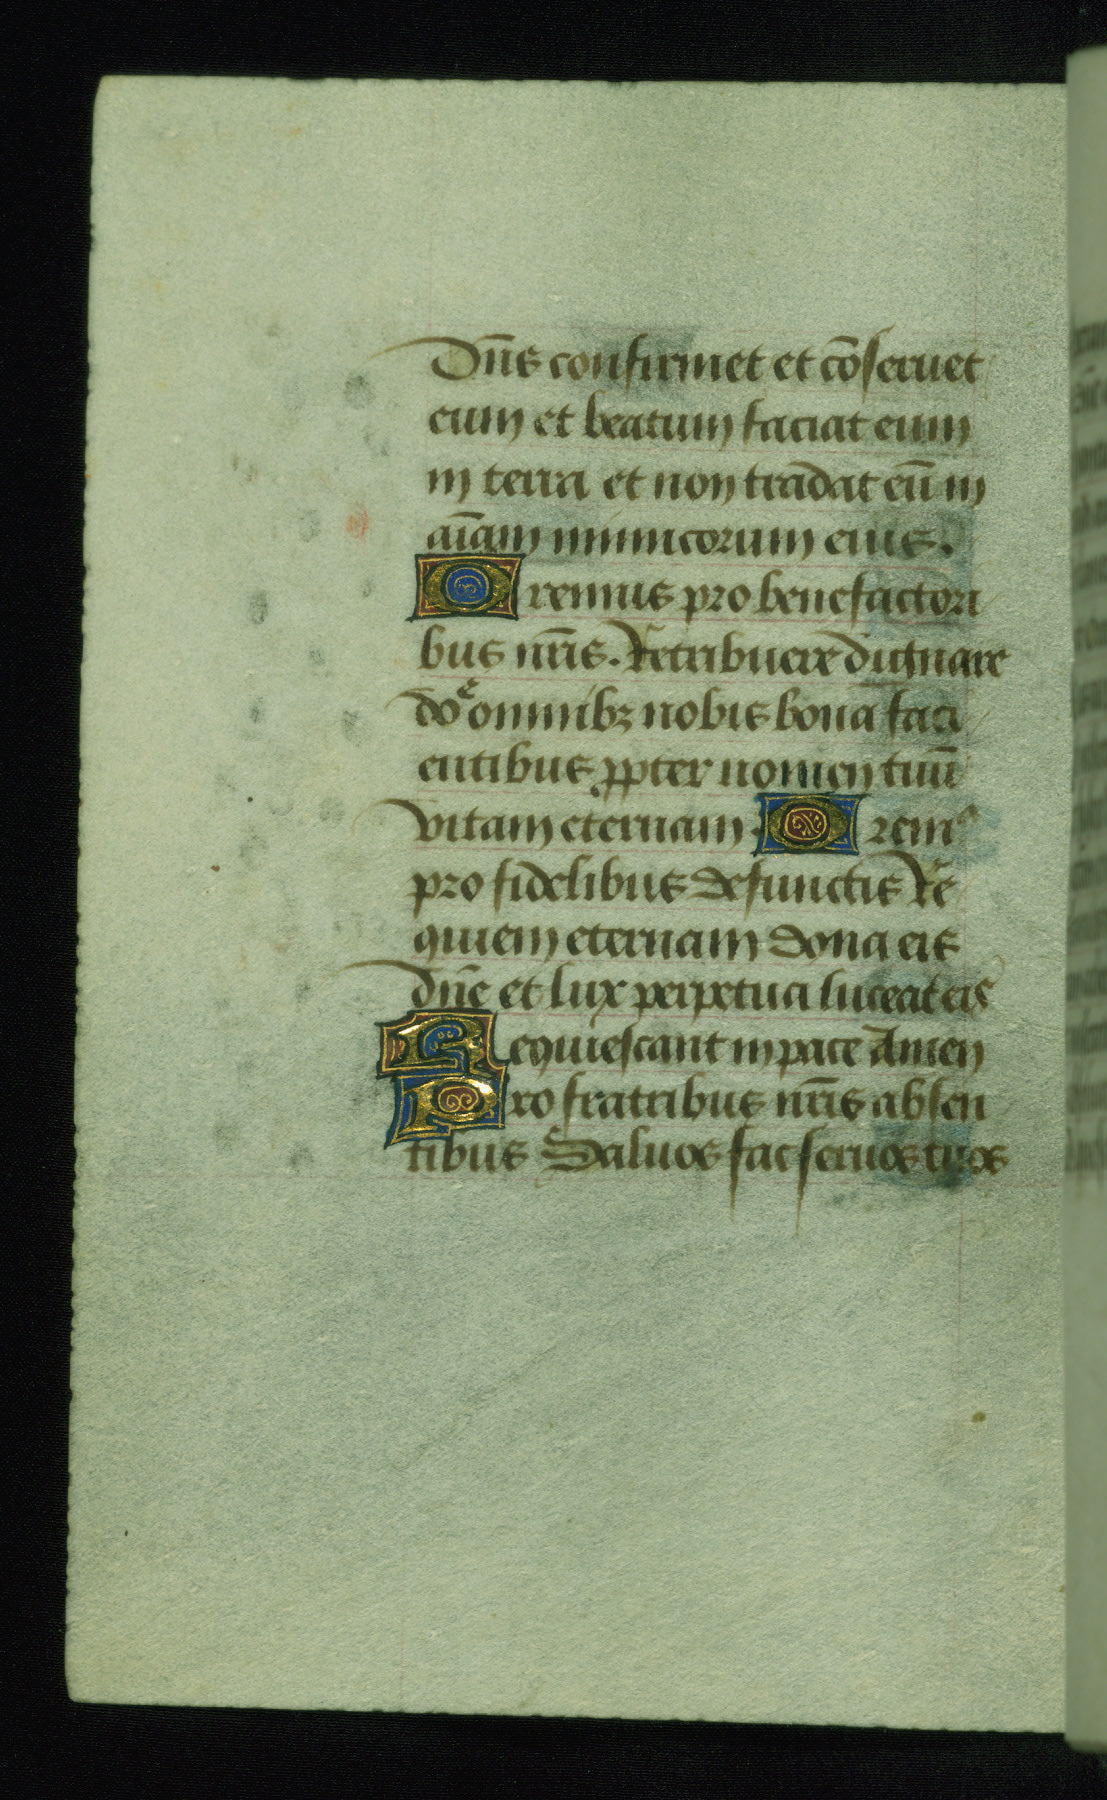 Dn̄s confirmet et cōseruet
eum et beatum faciat eum
in terra et non tradat eū in
aīam inimicorum eius.
Oremus pro benefactori
bus nr̄is. Retribuere dignare
dn̄e omnibꝫ nobis bona faci
entibus ꝓpter nomen tuū
vitam eternam. Oremꝰ
pro fidelibus defunctis Re
quiem eternam dona eis
dn̄e et lux perpetua luceat eis
Requiescant in pace Amen
Pro fratribus nr̄is absen
tibus Saluos fac seruos tuos